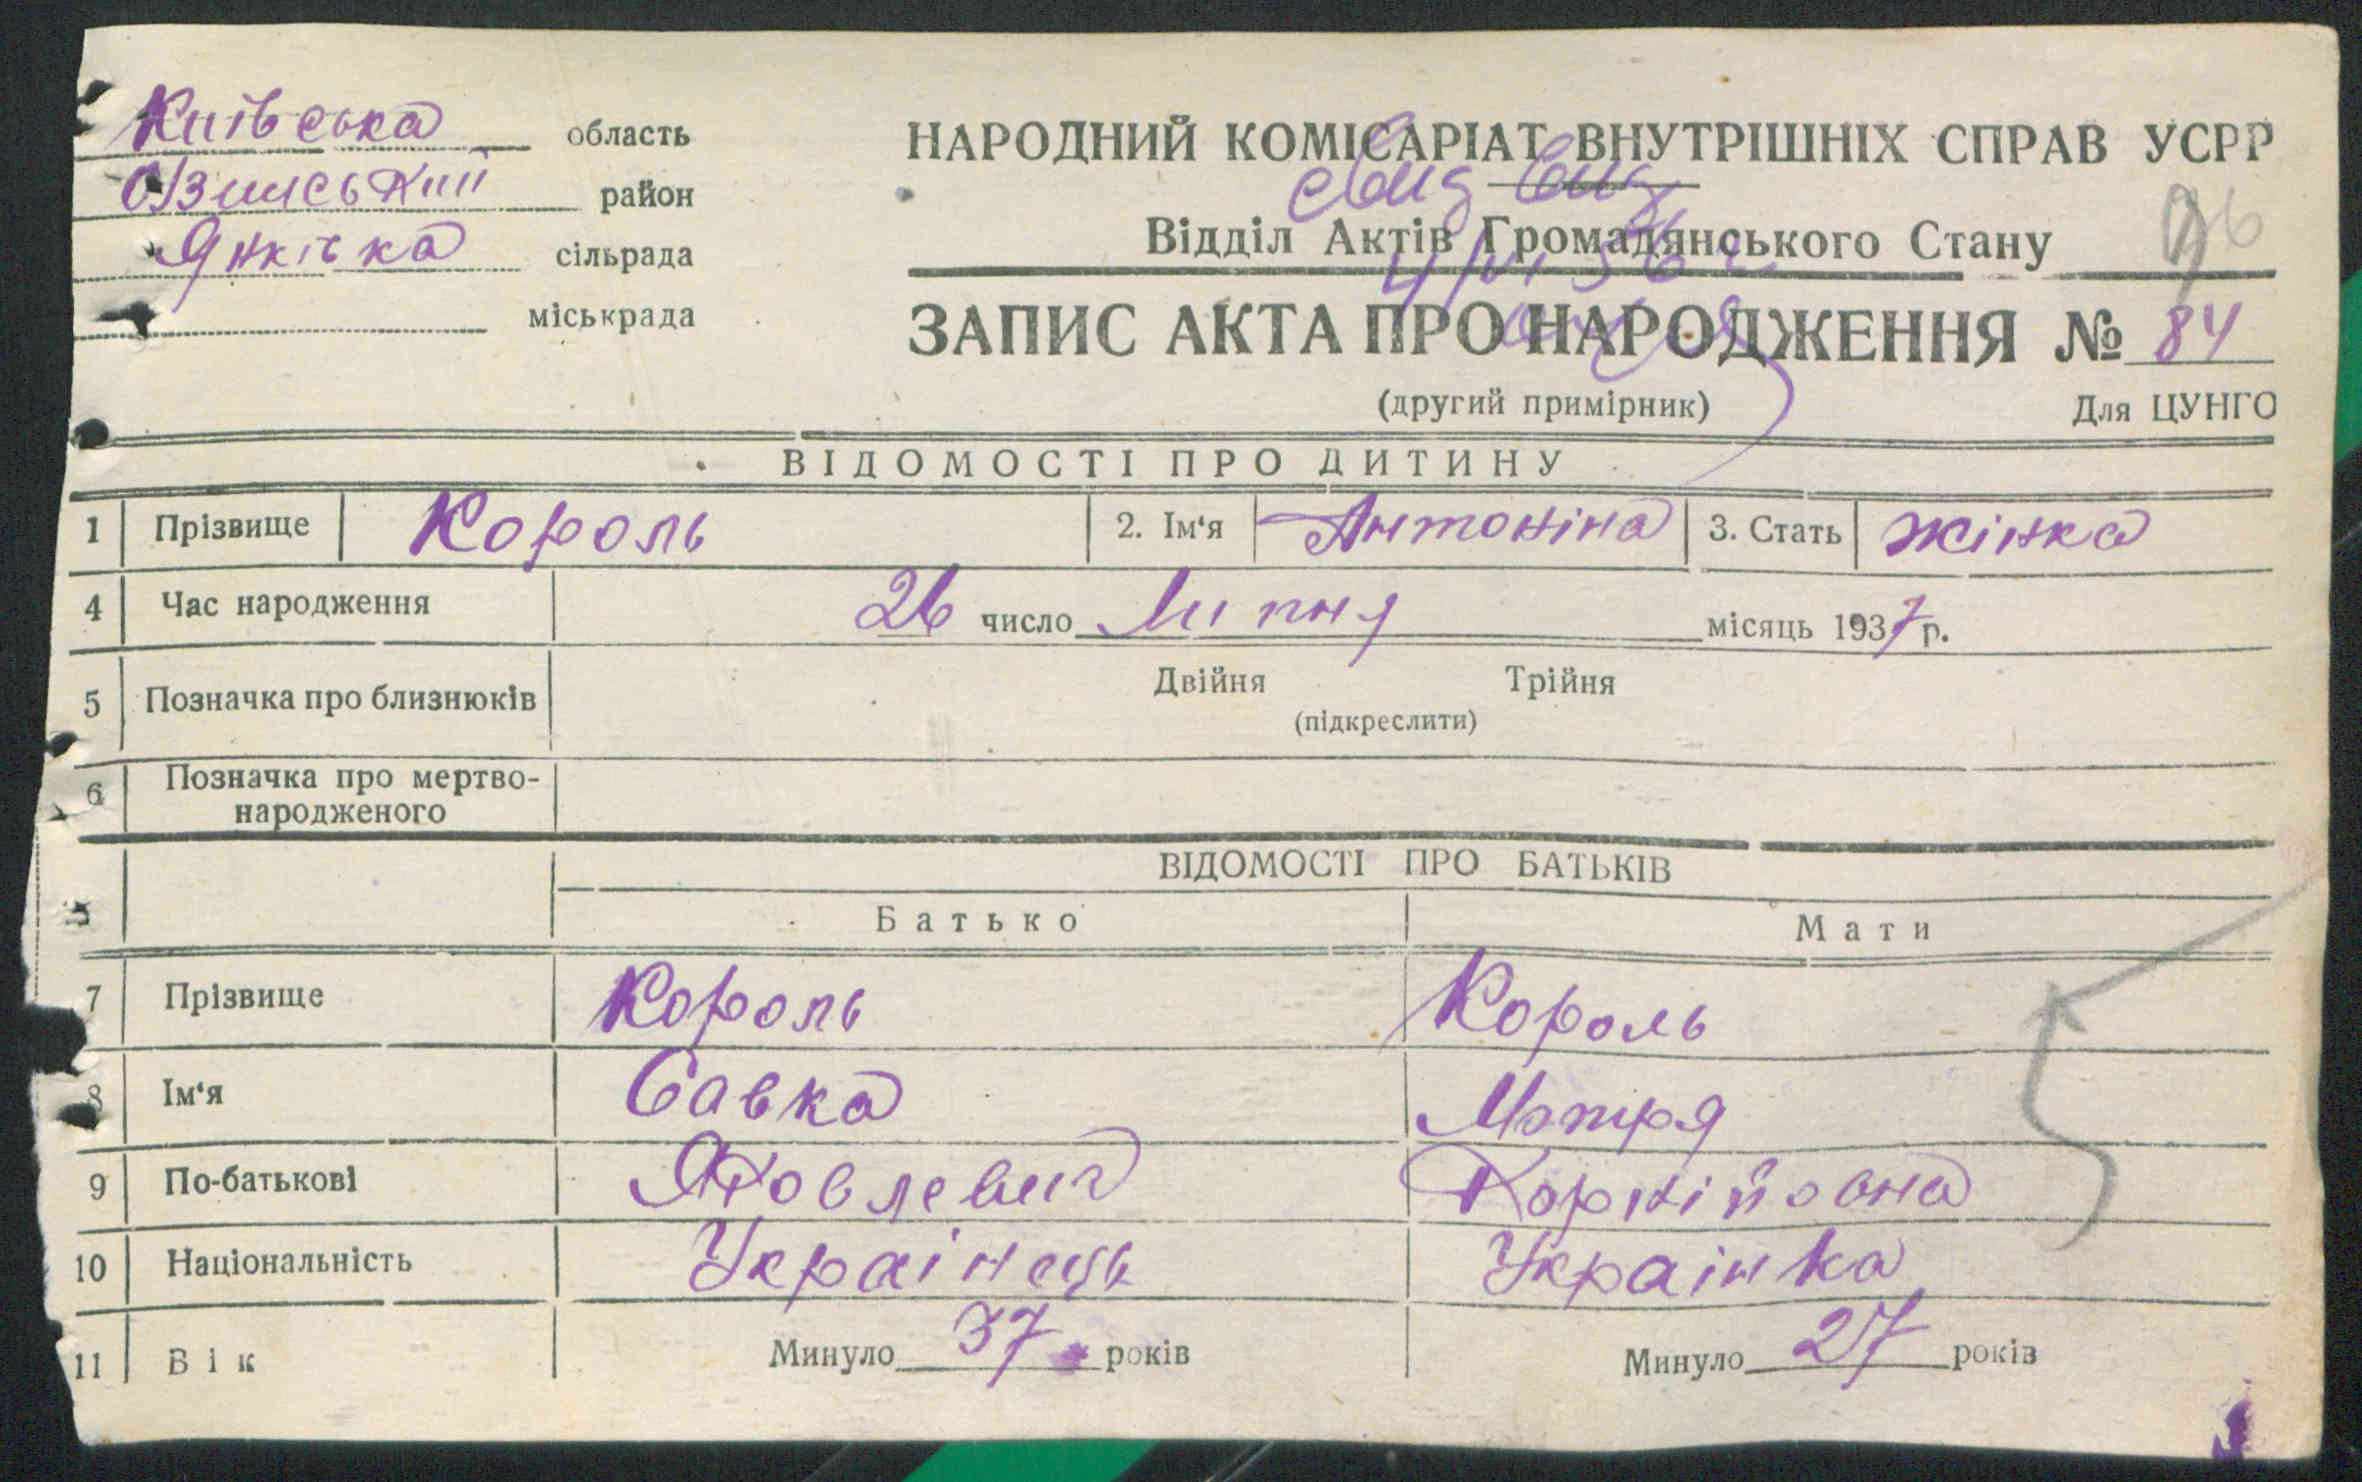 Київська область
район
Янківка сільрада
міськрада
НАРОДНИЙ КОМІСАРІАТ ВНУТРІШНІХ СПРАВ УСРР
Відділ Актів Громадянського Стану
ЗАПИС АКТА ПРО НАРОДЖЕННЯ № 84
(другий примірник) Для ЦУНГО
ВІДОМОСТІ ПРО ДИТИНУ
1 Прізвище Король 2. Ім‘я Антоніна 3. Стать жінка
4 Час народження 26 число Липня місяць 1937 р.
5 Позначка про близнюків Двійня Трійня
(підкреслити)
6 Позначка про мертво-
народженого
ВІДОМОСТІ ПРО БАТЬКІВ
Батько Мати
7 Прізвище Король Король
8 Ім‘я Савка Мотря
9 По-батькові Яковлевич Корнійовна
10 Національність Украінець Украінка
11 Вік Минуло 37 років Минуло 27 років